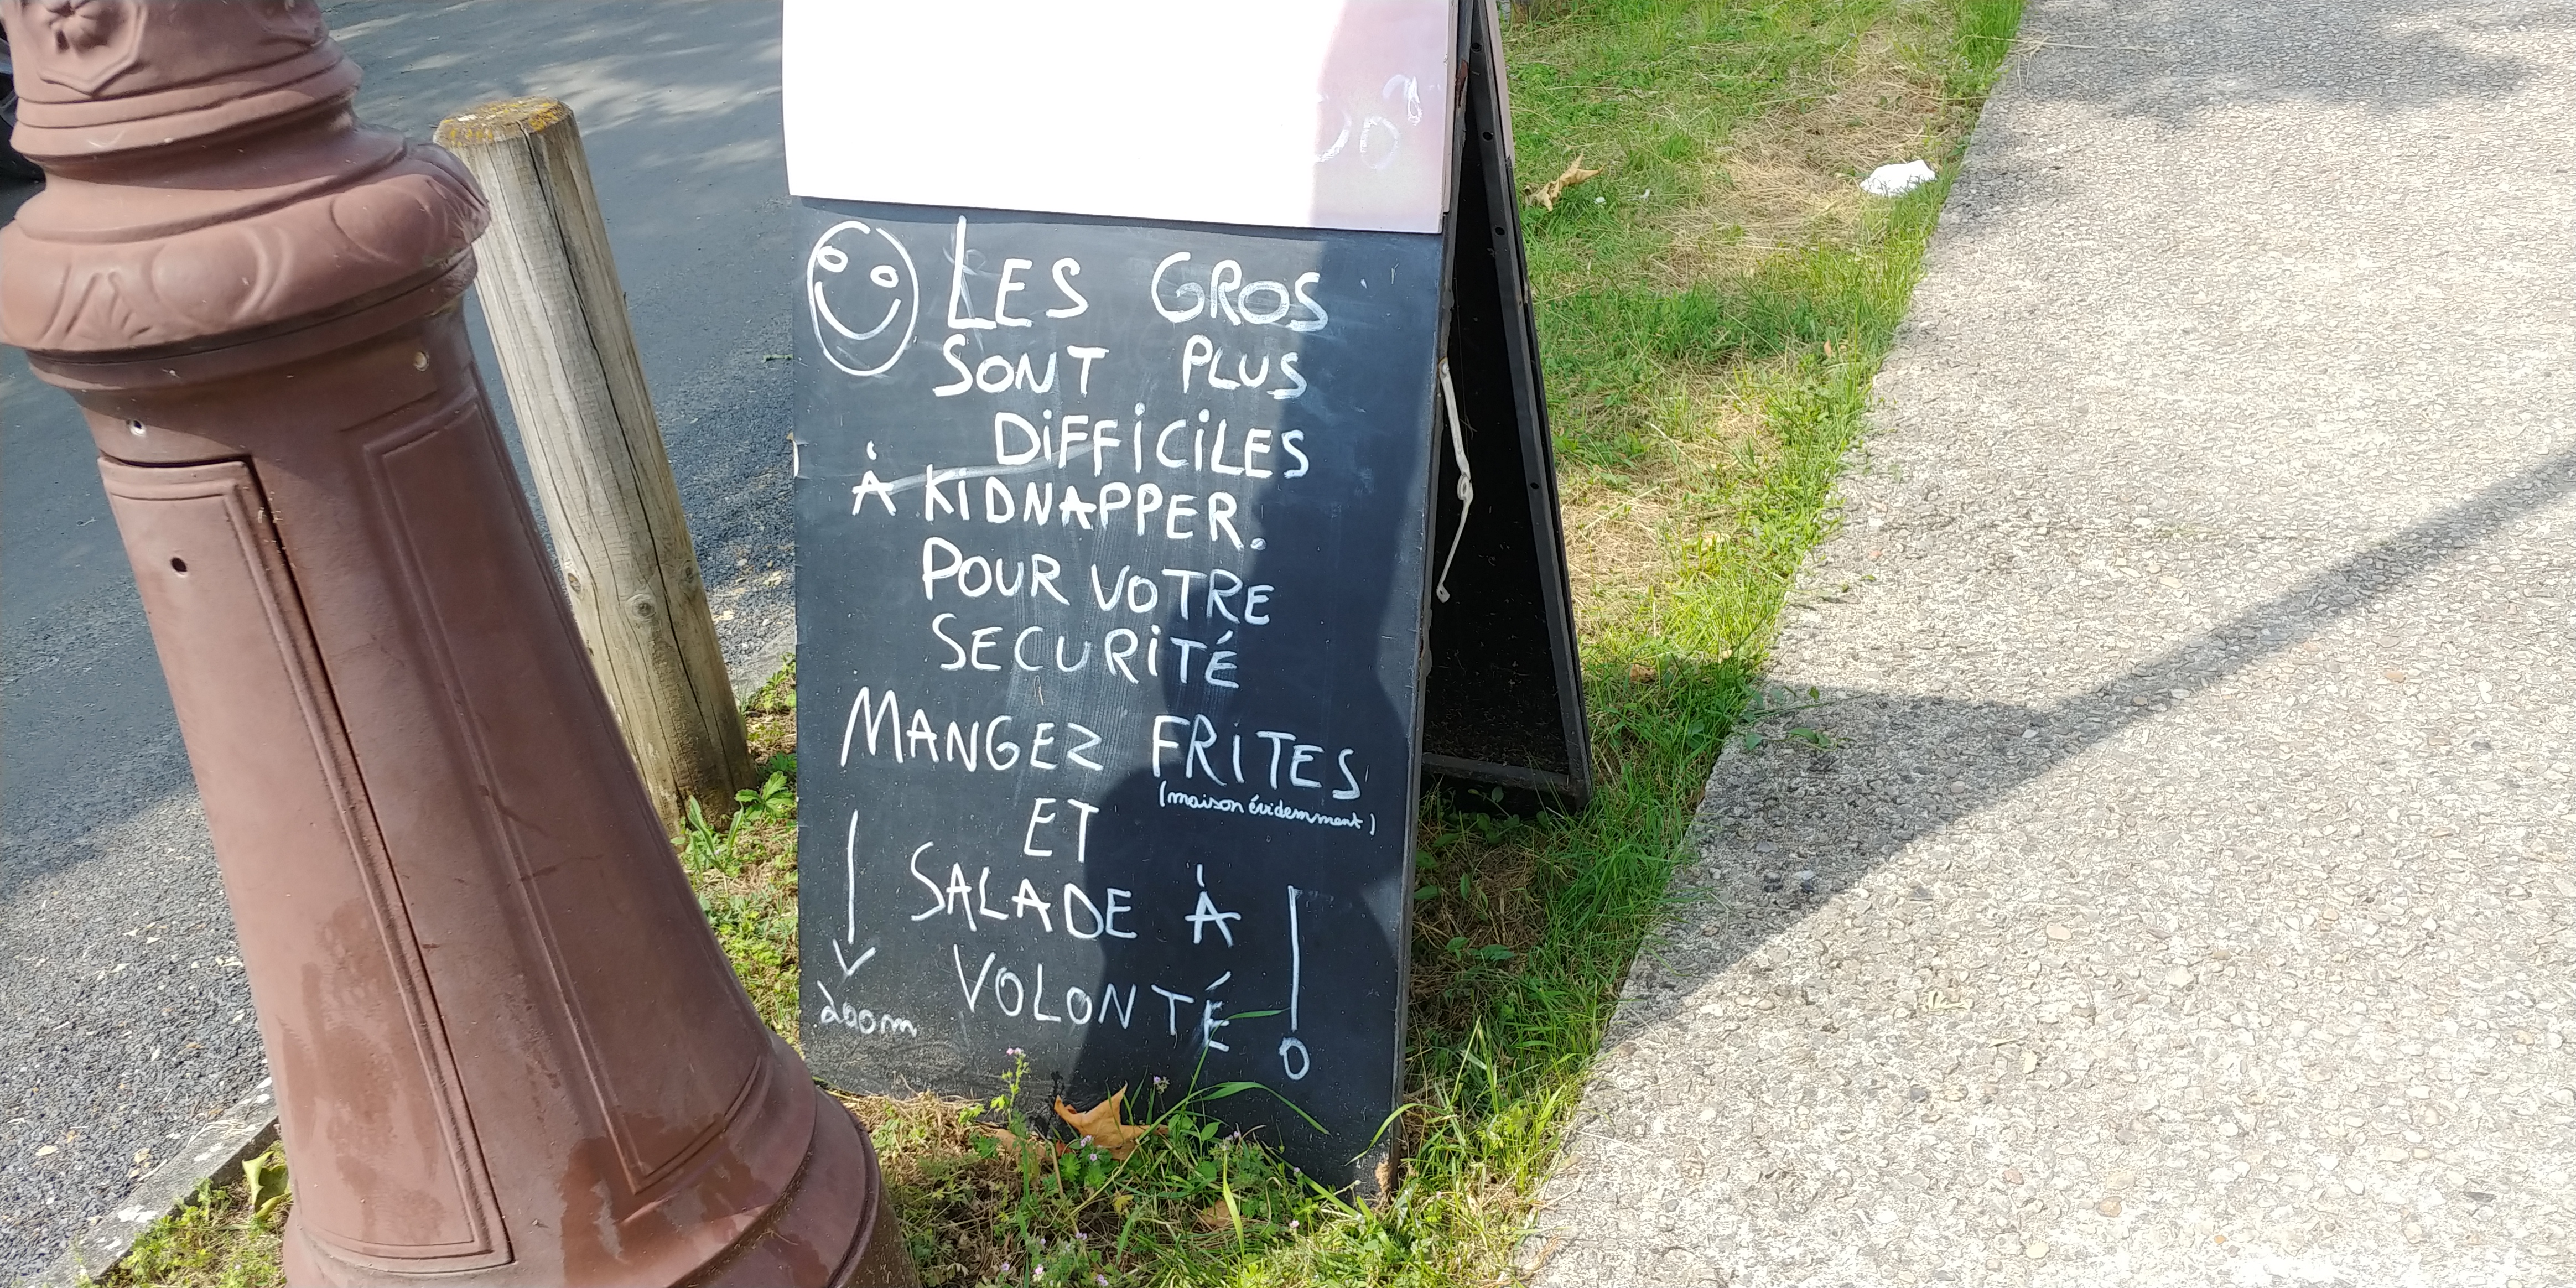 LES GROS
SONT PLUS
DIFFICILES
À KIDNAPPER.
POUR VOTRE
SECURITÉ
MANGEZ FRITES
(maison évidemment)
ET
SALADE À
VOLONTÉ !
200m